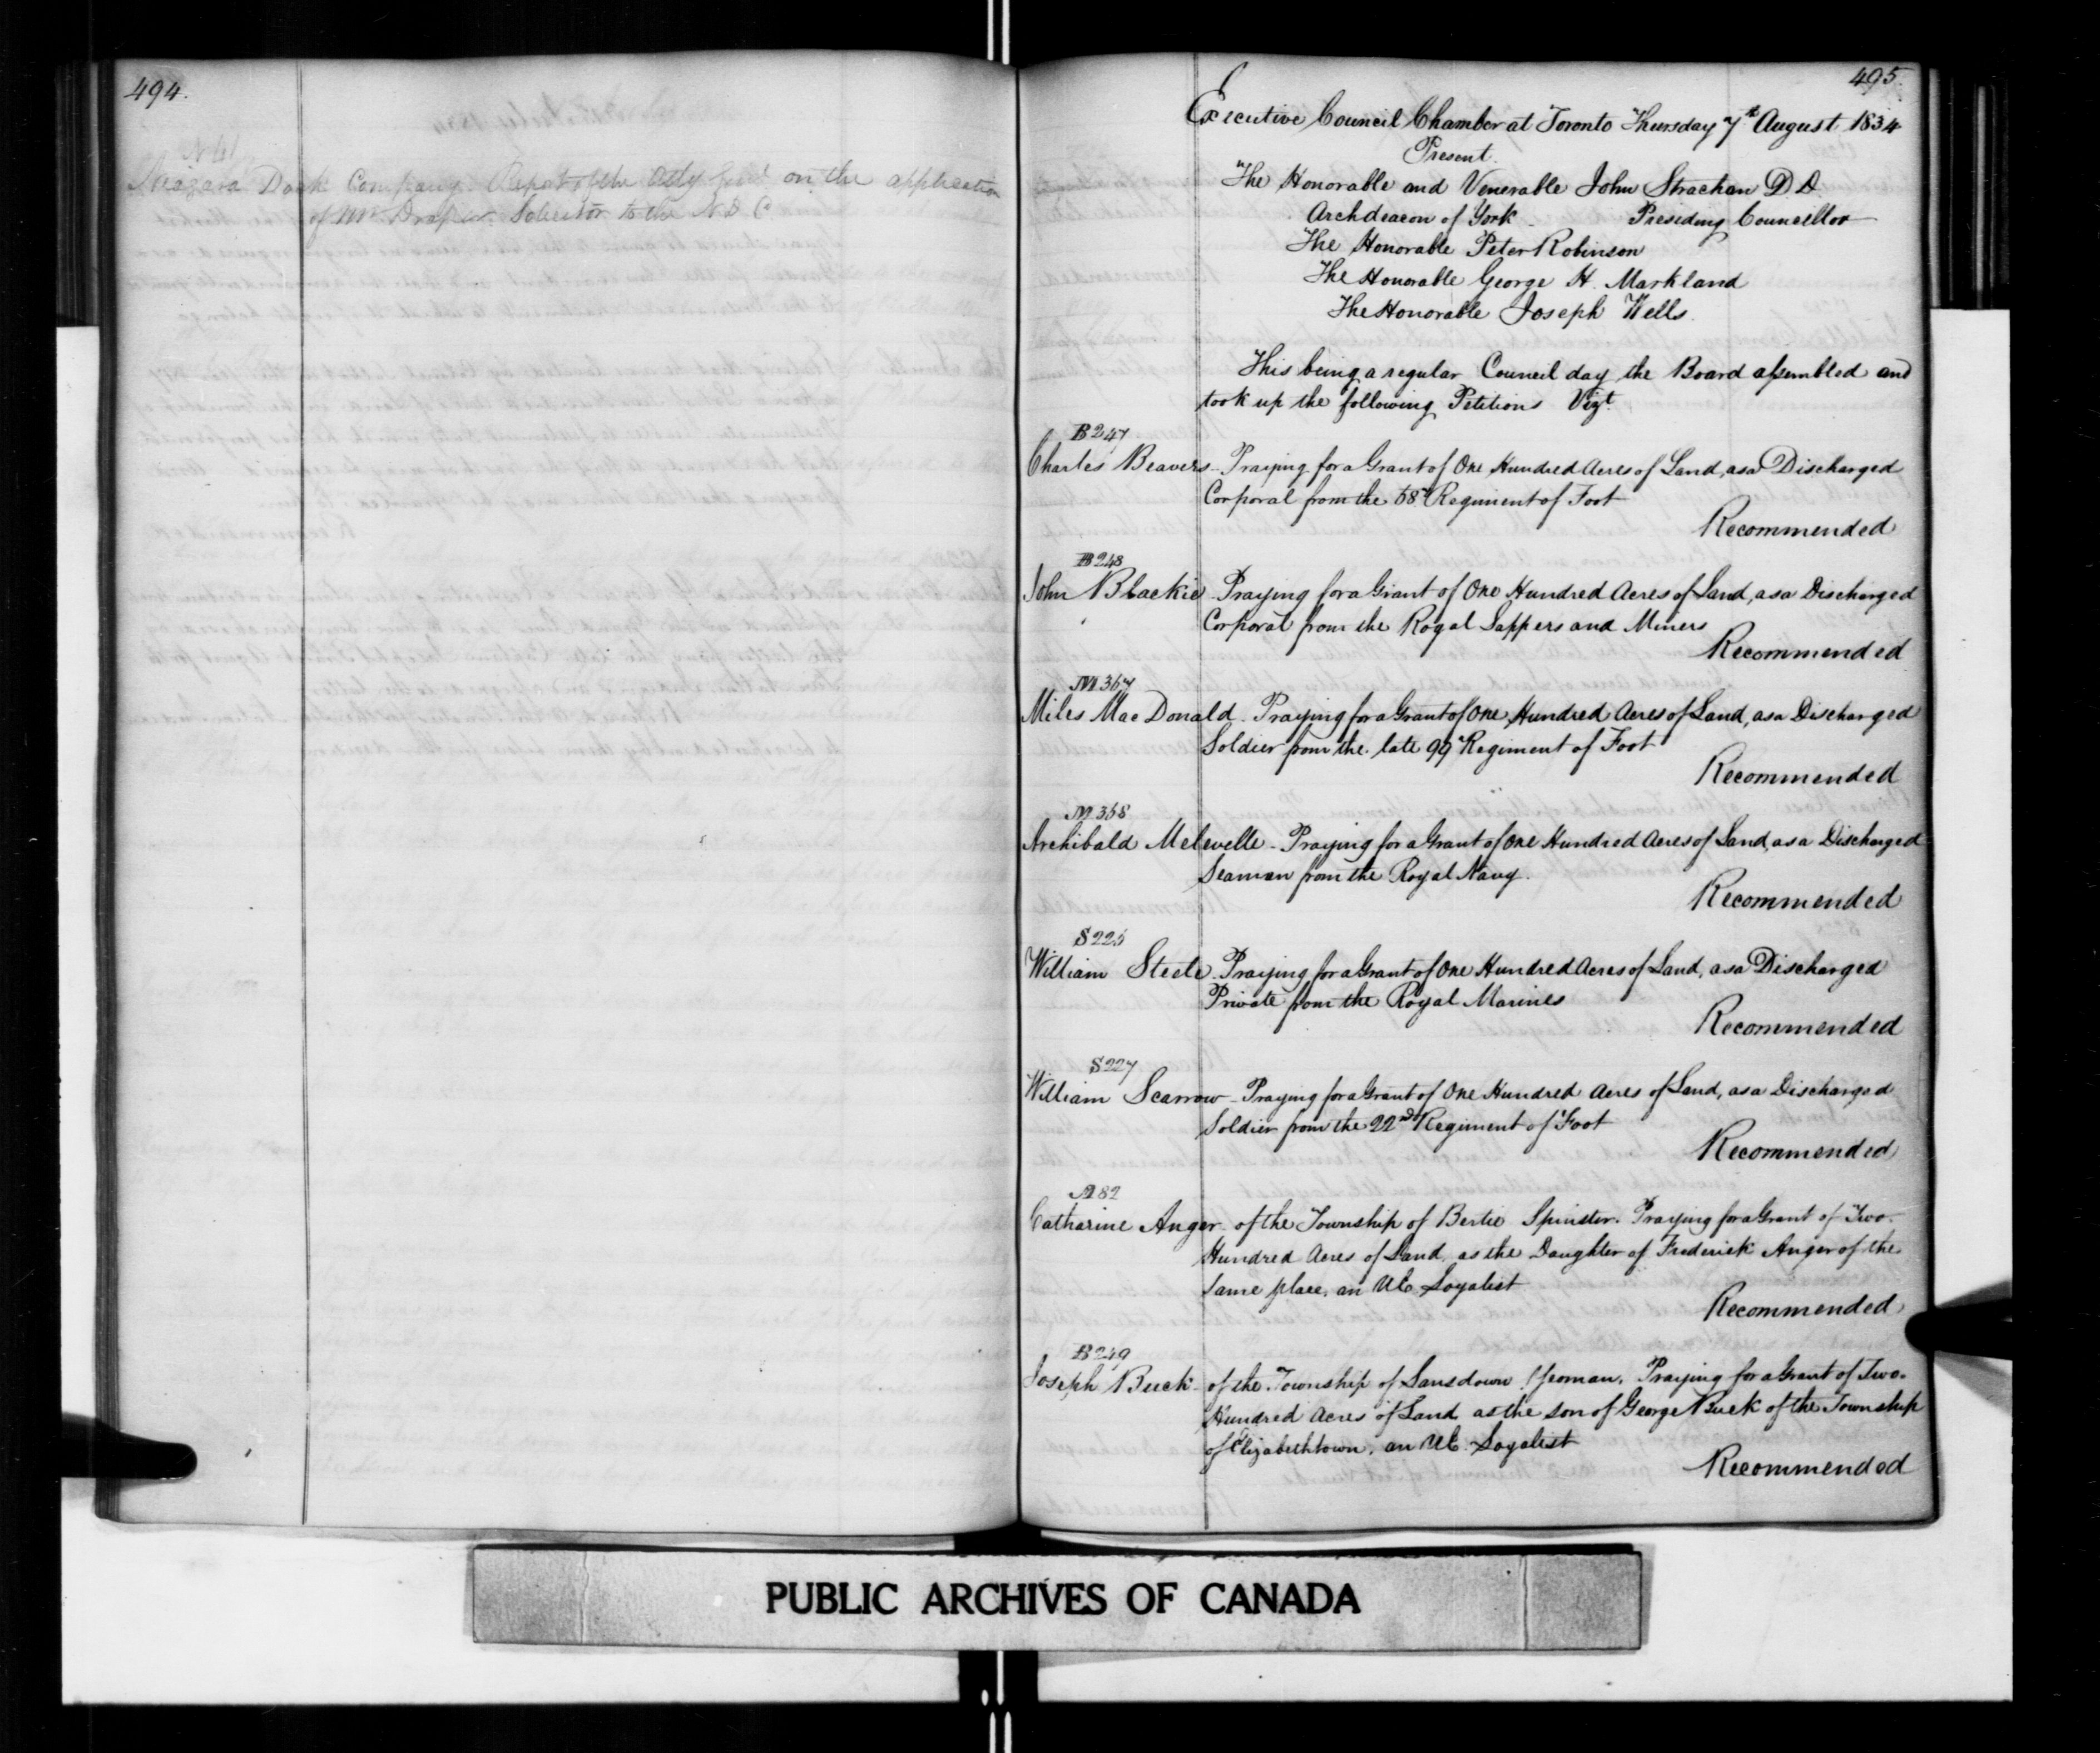 494.
Niagara Dock Company. Report of the Atty Genl on the application
of Mr Draper Solicitor to the N D C
495.
Executive Council Chamber at Toronto Thursday 7th August 1834
Present.
The Honorable and Venerable John Strachan D.D
Archdeacon of York - Presiding Councillor
The Honorable Peter Robinson
The Honorable George H. Markland
The Honorable Joseph Wells.
This being a regular Council day the Board assembled and
took up the following Petitions Vizt.
B247
Charles Beavers - Praying for a Grant of One Hundred Acres of Land, as a Discharged
Corporal from the 68th Regiment of Foot
Recommended
B248
John Blackie - Praying for a Grant of One Hundred Acres of Land, as a Discharged
Corporal from the Royal Sappers and Miners
Recommended
M367
Miles MacDonald - Praying for a Grant of One Hundred Acres of Land, as a Discharged
Soldier from the late 99th Regiment of Foot
Recommended
M368
Archibald Melevelle - Praying for a Grant of One Hundred Acres of Land, as a Discharged
Seaman from the Royal Navy.
Recommended
S225
William Steele - Praying for a Grant of One Hundred Acres of Land, as a Discharged
Private from the Royal Marines
Recommended
S227
William Scarrow - Praying for a Grant of One Hundred Acres of Land, as a Discharged
Soldier from the 22nd Regiment of Foot
Recommended
A82
Catharine Anger - of the Township of Bertie Spinster. Praying for a Grant of Two
Hundred Acres of Land, as the Daughter of Frederick Anger of the
same place, an UE Loyalist
Recommended
B249
Joseph Buck - of the Township of Lansdown Yeoman. Praying for a Grant of Two
Hundred Acres of Land as the son of George Buck of the Township
of Elizabethtown, an UE Loyalist
Recommended
PUBLIC ARCHIVES OF CANADA